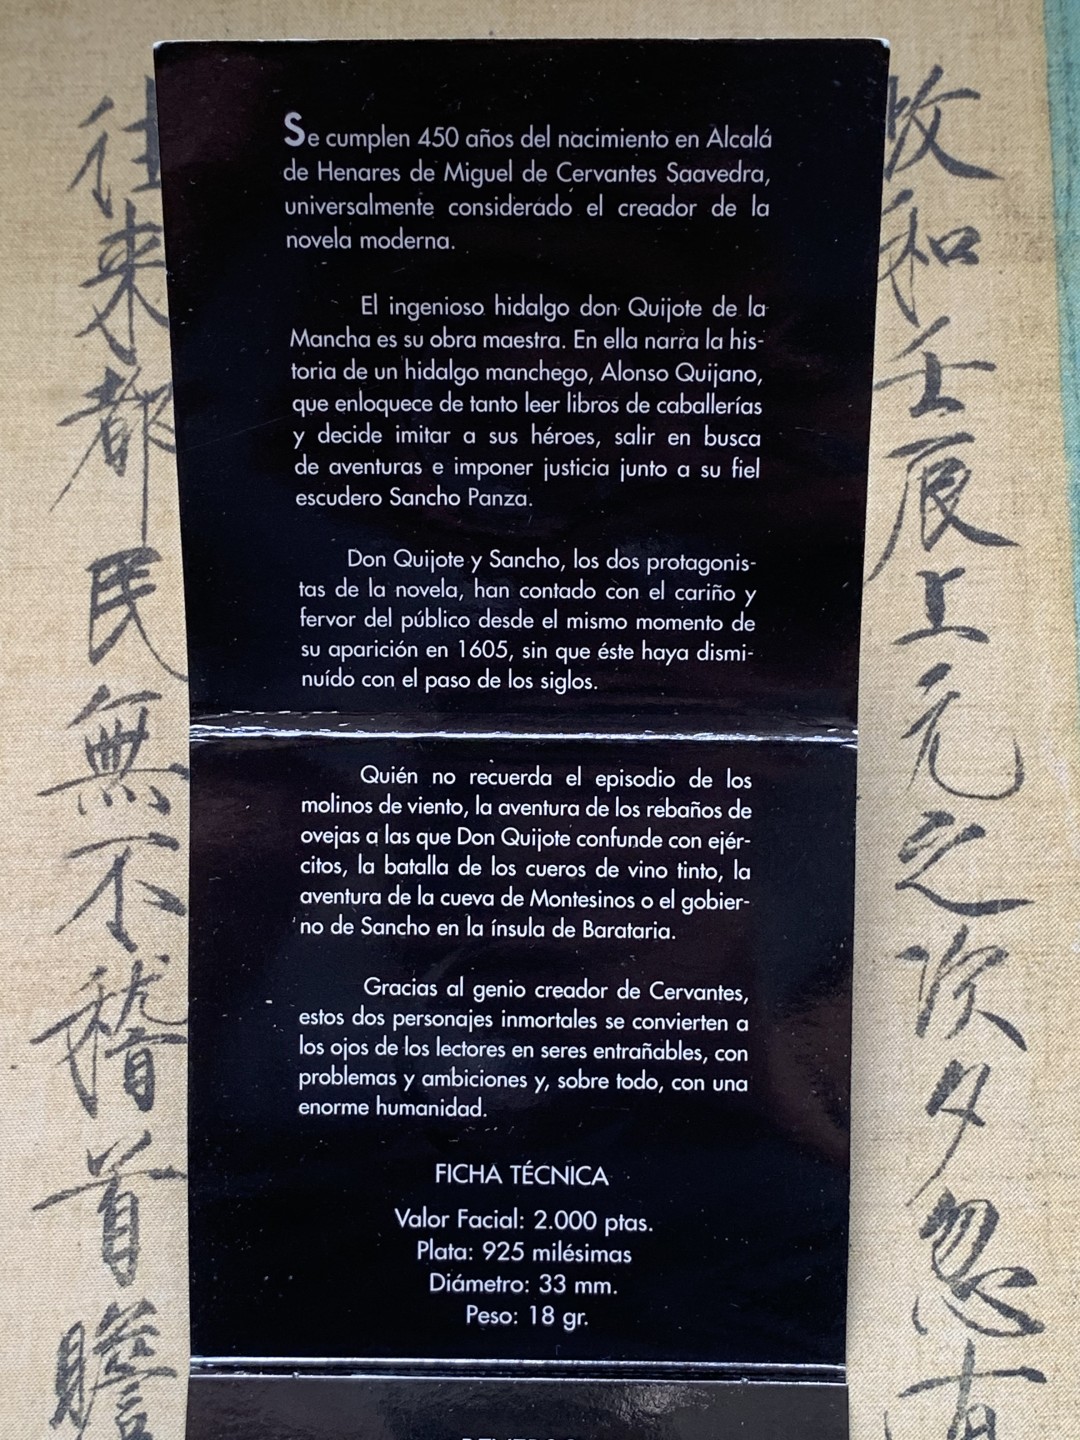 Se cumplen 450 años del nacimiento en Alcalá
de Henares de Miguel de Cervantes Saavedra,
universalmente considerado el creador de la
novela moderna.
El ingenioso hidalgo don Quijote de la
Mancha es su obra maestra. En ella narra la his-
toria de un hidalgo manchego, Alonso Quijano,
que enloquece de tanto leer libros de caballerías
y decide imitar a sus héroes, salir en busca
de aventuras e imponer justicia junto a su fiel
escudero Sancho Panza.
Don Quijote y Sancho, los dos protagonis-
tas de la novela, han contado con el cariño y
fervor del público desde el mismo momento de
su aparición en 1605, sin que éste haya dismi-
nuído con el paso de los siglos.
Quién no recuerda el episodio de los
molinos de viento, la aventura de los rebaños de
ovejas a las que Don Quijote confunde con ejér-
citos, la batalla de los cueros de vino tinto, la
aventura de la cueva de Montesinos o el gobier-
no de Sancho en la ínsula de Barataria.
Gracias al genio creador de Cervantes,
estos dos personajes inmortales se convierten a
los ojos de los lectores en seres entrañables, con
problemas y ambiciones y, sobre todo, con una
enorme humanidad.
FICHA TÉCNICA
Valor Facial: 2.000 ptas.
Plata: 925 milésimas
Diámetro: 33 mm.
Peso: 18 gr.
政和壬辰上元之次夕忽有
往來都民無不稽首瞻